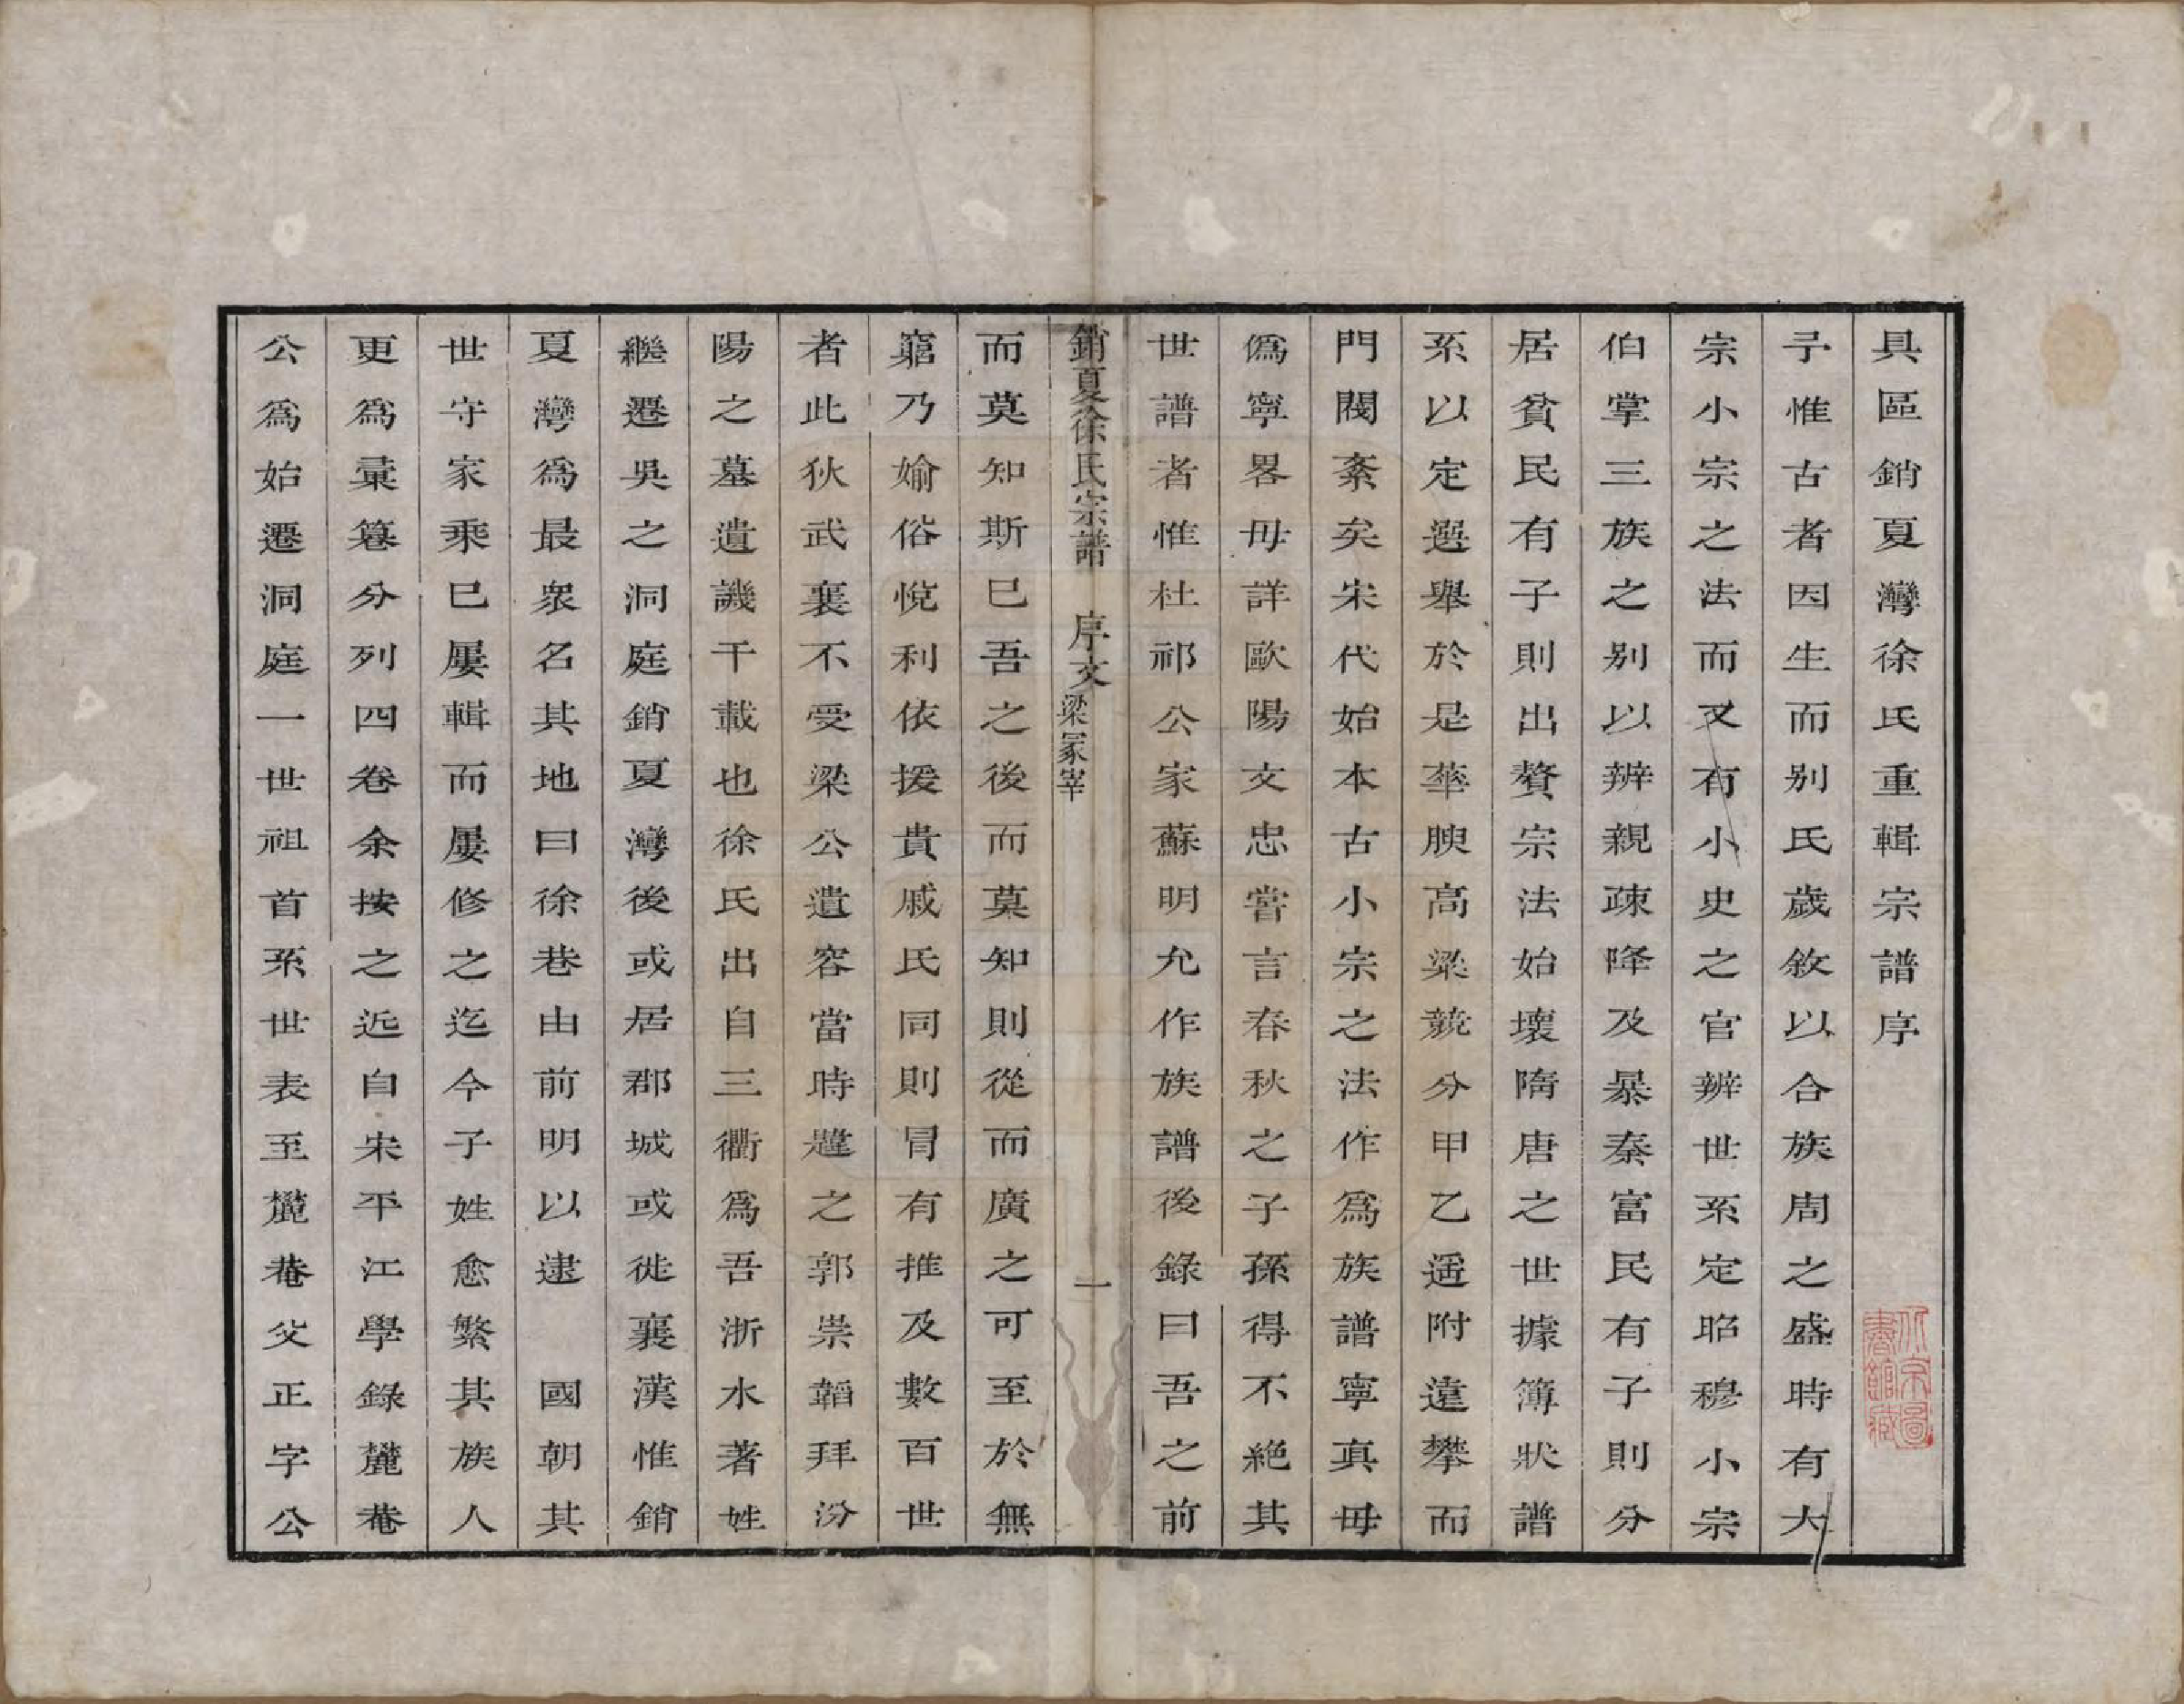 具區銷夏灣徐氏重輯宗譜序
子惟古者因生而别氏歲敘以合族周之盛時有大
宗小宗之法而又有小史之官辨世系定昭穆小宗
伯掌三族之别以辨親疎降及暴秦富民有子則分
居貧民有子則出贅宗法始壞隋唐之世據簿狀譜
系以定選舉於是華腴高梁競分甲乙遥附遠攀而
門閥紊矣宋代始本古小宗之法作爲族譜寧真毋
僞寧畧毋詳歐陽文忠嘗言春秋之子孫得不絶其
世譜者惟杜祁公家蘇明允作族譜後錄曰吾之前
銷夏徐氏宗譜 序文 梁冡宰 一
而莫知斯巳吾之後而莫知則從而廣之可至於無
窮乃媮俗悅利依援貴戚氏同則冒有推及數百世
者此狄武襄不受梁公遺容當時韙之郭崇韜拜汾
陽之墓遺譏千載也徐氏出自三衢爲吾浙水著姓
繼遷吳之洞庭銷夏灣後或居郡城或徙襄漢惟銷
夏灣爲最衆名其地曰徐巷由前明以逮 國朝其
世守家乘巳屢輯而屢修之迄今子姓愈繁其族人
更爲彙篹分列四卷余按之近自宋平江學錄麓菴
公爲始遷洞庭一世祖首系世表至麓菴父正字公
北京圖書館藏